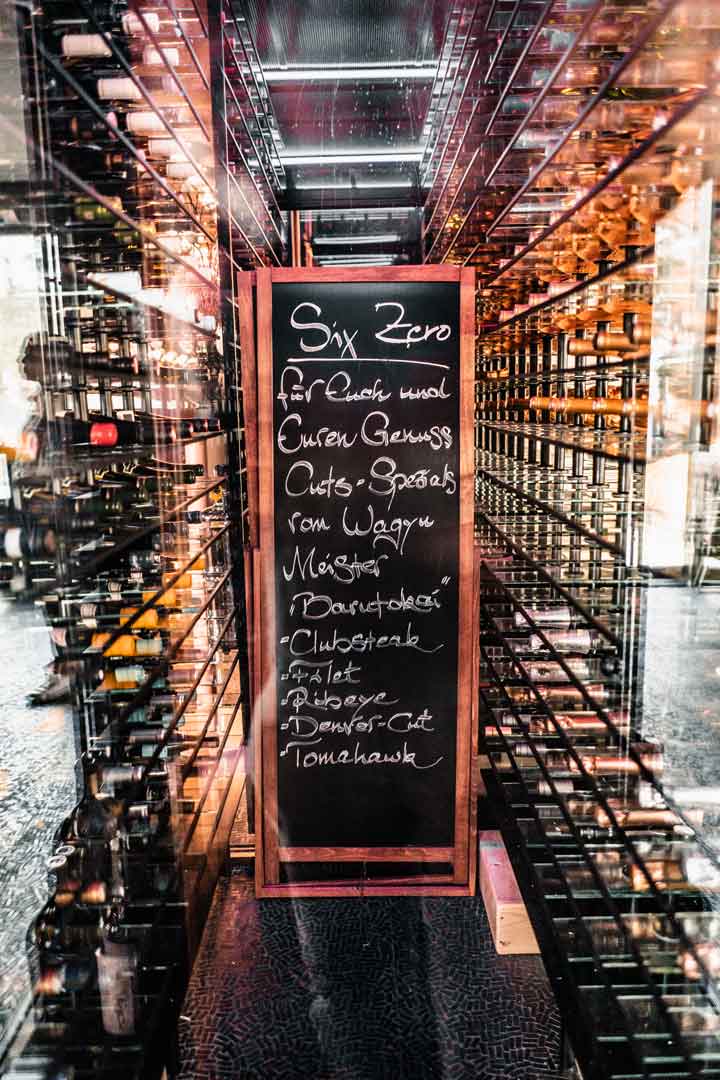 Six Zero
für Euch und
Euren Genuss
Cuts-Spezials
vom Wagyu
Meister
-Clubsteak
-Filet
-Ribeye
-Denver-Cut
-Tomahawk